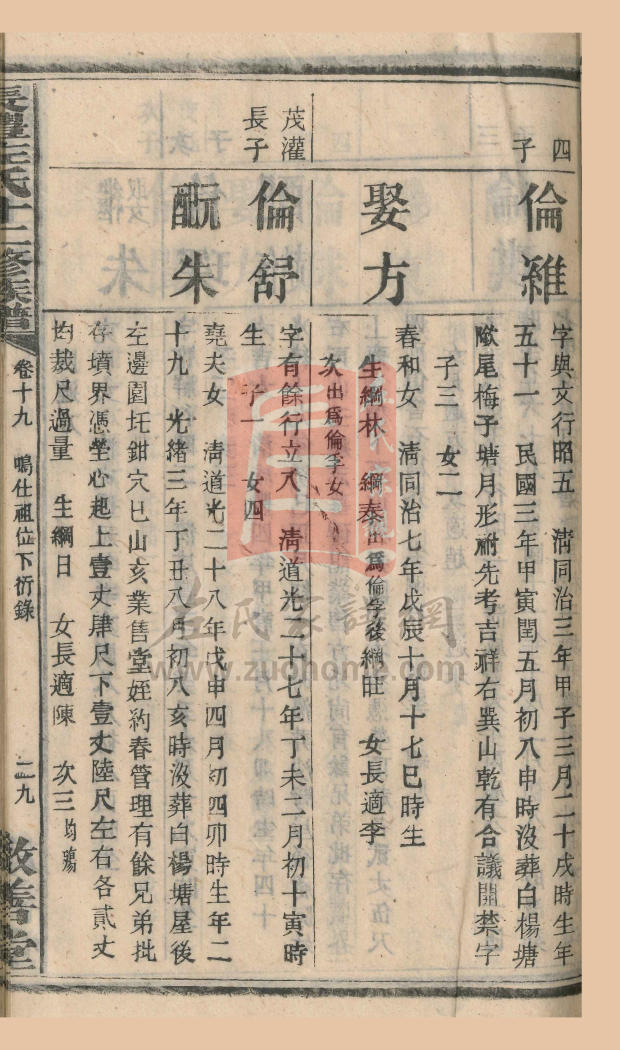 四子
倫雅
字與文行昭五 清同治三年甲子三月二十戌時生年
五十一 民國三年甲寅閏五月初八申時沒葬白楊塘
尾梅子塘月形祔先考吉祥右巽山乾有合議開禁字
子三 女二
娶方
春和女 清同治七年戊辰十月十七巳時生
生綱林 綱泰出爲倫孚後綱旺 女長適李
次出爲倫孚女
茂灌長子
倫舒
字有餘行立八 清道光二十七年丁未二月初十寅時
生 子一 女四
配朱
堯夫女 清道光二十八年戊申四月初四卯時生年二
十九 光緒三年丁丑八月初八亥時沒葬白楊塘屋後
左邊園坵鉗穴巳山亥業售堂姪約春管理有餘兄弟批
存墳界憑塋心起上壹丈肆尺下壹丈陸尺左右各貳丈
均裁尺過量 生綱日 女長適陳 次三均殤
長豐左氏十二修族譜
卷十九 鳴仕祖位下衍錄
二九
敦善堂
左氏家譜網
www.zuohome.com